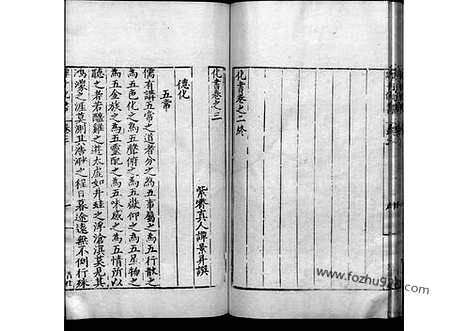 化書卷之二終
化書卷之三
紫霄真人譚景昇譔
德化
五常
儒有講五常之道者分之為五事屬之為五行散之
為五色化之為五聲俯之為五嶽仰之為五星物之
為五金族之為五靈配之為五味感之為五情所以
聽之者若醯雞之遊太虛如井蛙之浮滄溟莫見其
鴻濛之涯莫測其浩渺之程日暮途遠無不倒行殊
www.fozhu920.com